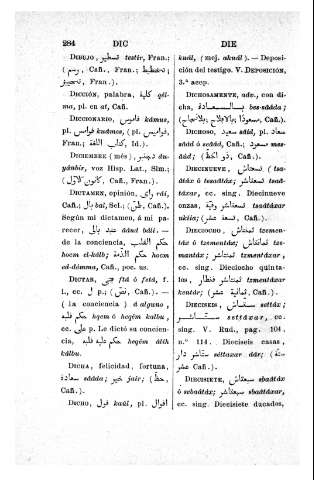 284 DIC DIE
DIBUJO, تسطير testir, Fran.;
تخطيط, Cañ., Fran.; (رسم,
Cañ., Fran.).
DICCIÓN, palabra, كلمة quél-
ma, pl. en at, Cañ.
DICCIONARIO, قاموس kámus,
pl. قواميس kuámes, (قواميس,
Fran.; كتاب اللغة, Id.).
DICIEMBRE (mes), دجنبر du-
yánbir, voz Hisp. Lat., Sim.;
(كانون الاول, Cañ., Fran.).
DICTAMEN, opinión, راى rái,
Cañ.; بال bal, Sel.; (ظن, Cañ.).
Según mi dictamen, á mi pa-
recer, عند بالى aând báli. —
de la conciencia, حكم القلب
hocm el-kálb; حكم الذمة hocm
ed-démma, Cañ., poc. us.
DICTAR, فتى ftá ó fetá, f.
I., cc. ل p.; (نص, Cañ.). —
(la conciencia) á alguno,
حكم قلبه hçem ó heçém kálbu,
cc. على p. Le dictó su concien-
cia, حكم عليه قلبه heçém âlih
kálbu.
DICHA, felicidad, fortuna,
سعادة saâda; خير jair; (حظ,
Cañ.).
DICHO, قول kaúl, pl. اقوال
kuál, (mej. akuál). — Deposi-
ción del testigo. V. DEPOSICIÓN,
3.ª acep.
DICHOSAMENTE, adv., con di-
cha, بالسعادة bes-saâda;
(مسعودًا, بالافلاح, بالنجاح, Cañ.).
DICHOSO, سعيد saîd, pl. سعاد
sâad ó seâad, Cañ.; مسعود mes-
âád; (ذو الحظ, Cañ.).
DIECINUEVE, تسعتاش (tsa-
âtáx ó tsaâtáx; تسعتاشر tsaâ-
táxar, cc. sing. Diecinueve
onzas, تسعتاشر وقية tsaâtáxar
ukíia; (تسعة عشر, Cañ.).
DIECIOCHO, تمنتاش tzemen-
táx ó tzementáx; تمنتاش tze-
mantáx; تمنتاشر tzmentáxar,
cc. sing. Dieciocho quinta-
les, تمنتاشر قنطار tzmentáxar
kontár; (ثمانية عشر, Cañ.).
DIECISEIS, ستاش settáx;
ستاشر settáxar, cc.
sing. V. Rud., pag. 104,
n.º 114. Dieciseis casas,
ستاشر دار séttaxar dár; (ستة
عشر Cañ.).
DIECISIETE, سبعتاش sbaâtáx
ó sebaâtáx; سبعتاشر sbaâtáxar,
cc. sing. Diecisiete ducados,